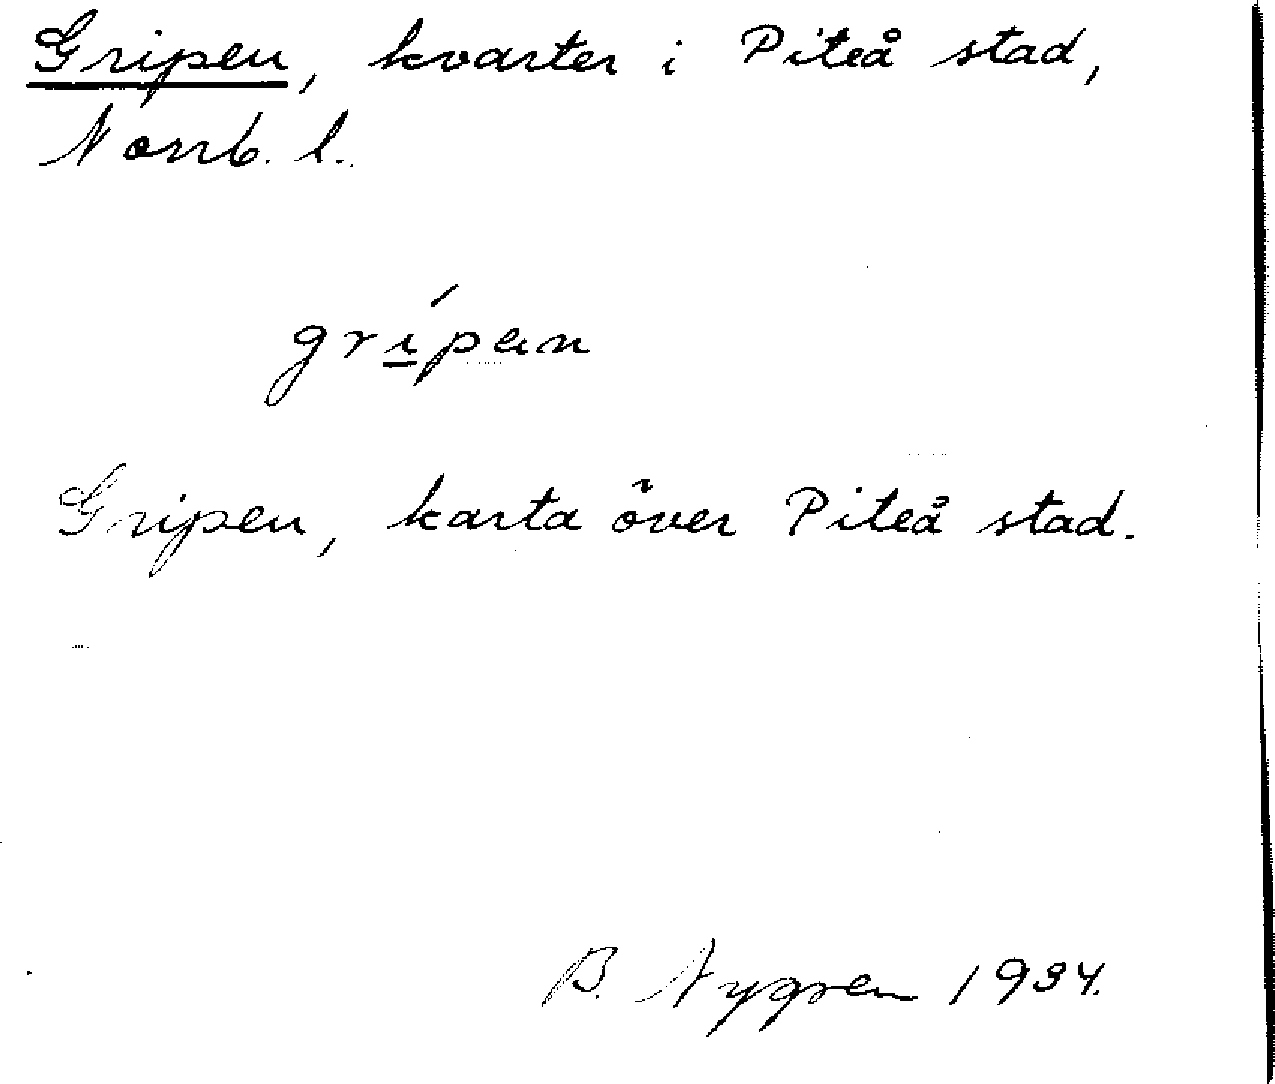 Gripen, kvarter i Piteå stad,
Norrb. l.
gripen
Gripen, karta över Piteå stad.
B. Nygren 1934.